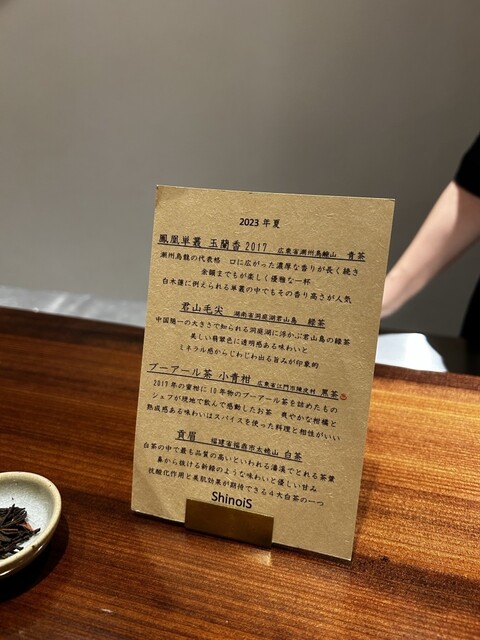 2023年夏
鳳凰単叢 玉蘭香2017 広東省潮州烏崠山 青茶
潮州烏龍の代表格 口に広がった濃厚な香りが長く続き
余韻までもが楽しく優雅な一杯
白木蓮に例えられる単叢の中でもその香り高さが人気
君山毛尖 湖南省洞庭湖君山島 緑茶
中国随一の大きさで知られる洞庭湖に浮かぶ君山島の緑茶
美しい翡翠色に透明感ある味わいと
ミネラル感からじわじわ出る旨みが印象的
プーアール茶 小青柑 広東省江門市陳皮村 黒茶
2017年の蜜柑に10年物のプーアール茶を詰めたもの
シェフが現地で飲んで感動したお茶 爽やかな柑橘と
熟成感ある味わいはスパイスを使った料理と相性がいい
貢眉 福建省福鼎市太姥山 白茶
白茶の中で最も品質の高いといわれる潘渓でとれる茶葉
鼻から抜ける新緑のような味わいと優しい甘み
抗酸化作用と美肌効果が期待できる4大白茶の一つ
ShinoiS